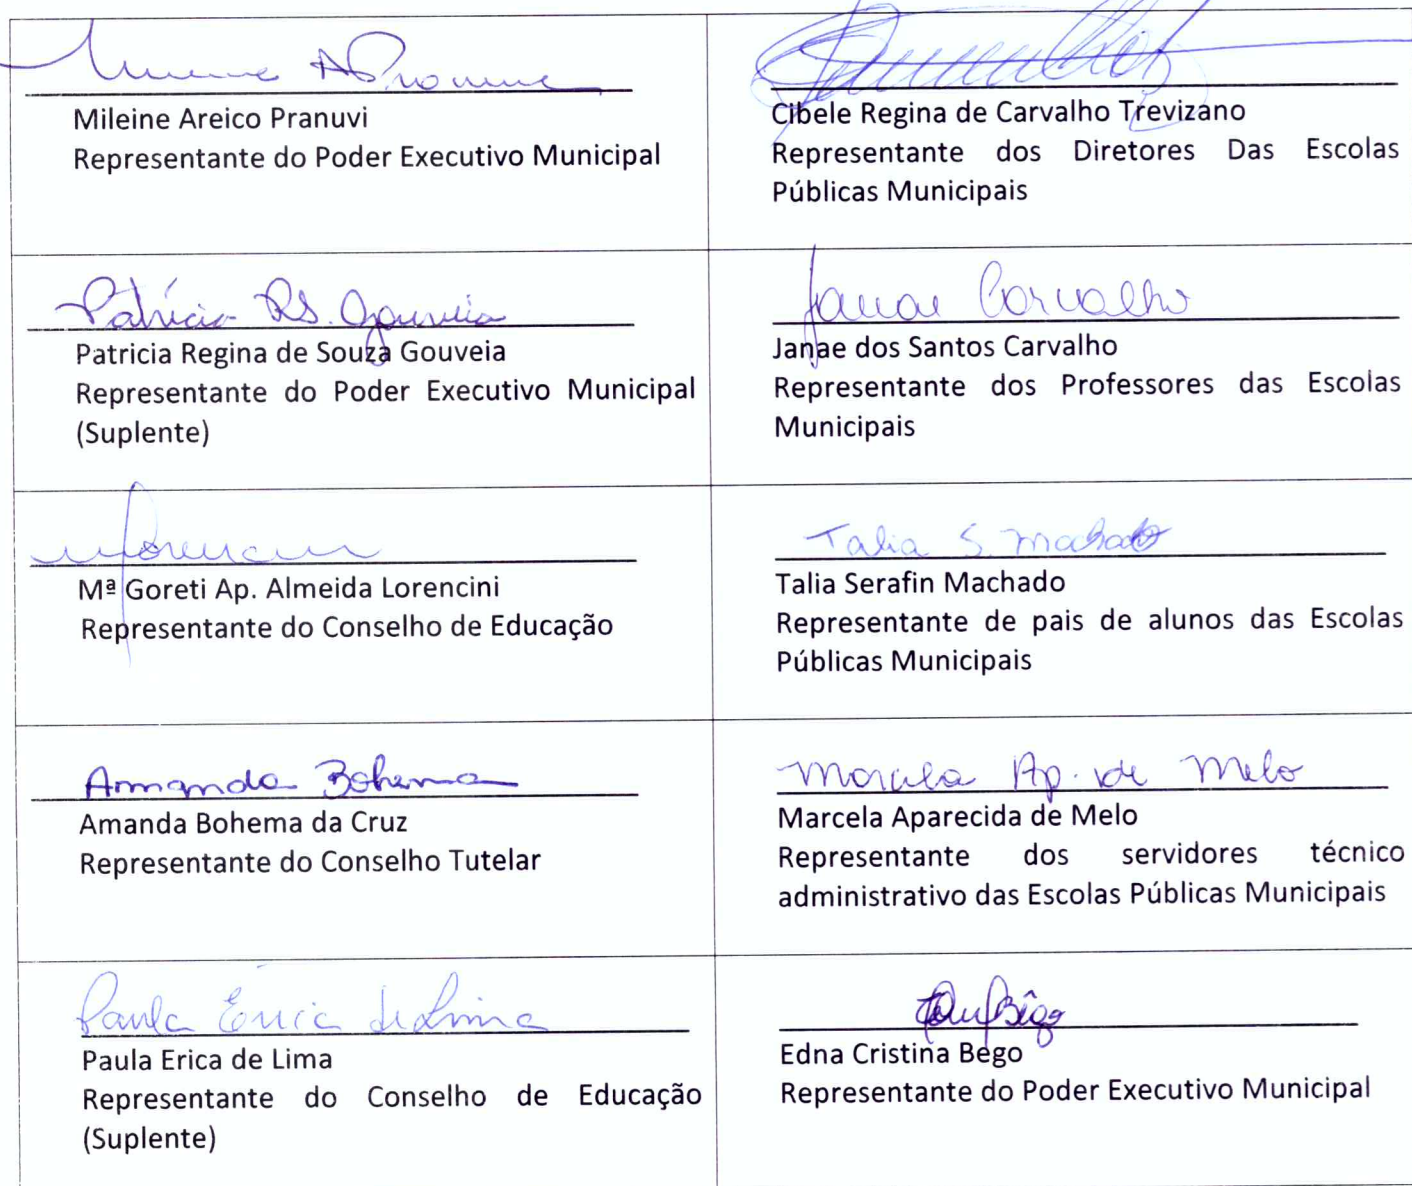 Mileine Areico Pranuvi
Representante do Poder Executivo Municipal
Cibele Regina de Carvalho Trevizano
Representante dos Diretores Das Escolas
Públicas Municipais
Patrícia RS. Gouveia
Patricia Regina de Souza Gouveia
Representante do Poder Executivo Municipal
(Suplente)
Janae Carvalho
Janae dos Santos Carvalho
Representante dos Professores das Escolas
Municipais
Mª Goreti Ap. Almeida Lorencini
Representante do Conselho de Educação
Talia S. Machado
Talia Serafin Machado
Representante de pais de alunos das Escolas
Públicas Municipais
Amanda Bohema
Amanda Bohema da Cruz
Representante do Conselho Tutelar
Marcela Ap. de Melo
Marcela Aparecida de Melo
Representante dos servidores técnico
administrativo das Escolas Públicas Municipais
Paula Érica de Lima
Paula Erica de Lima
Representante do Conselho de Educação
(Suplente)
Edna Cristina Bego
Representante do Poder Executivo Municipal